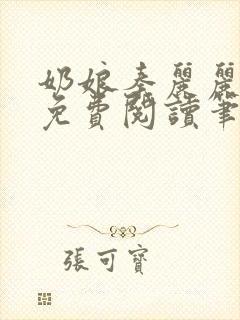 奶娘秦麗麗
免費閱讀筆
張可寶